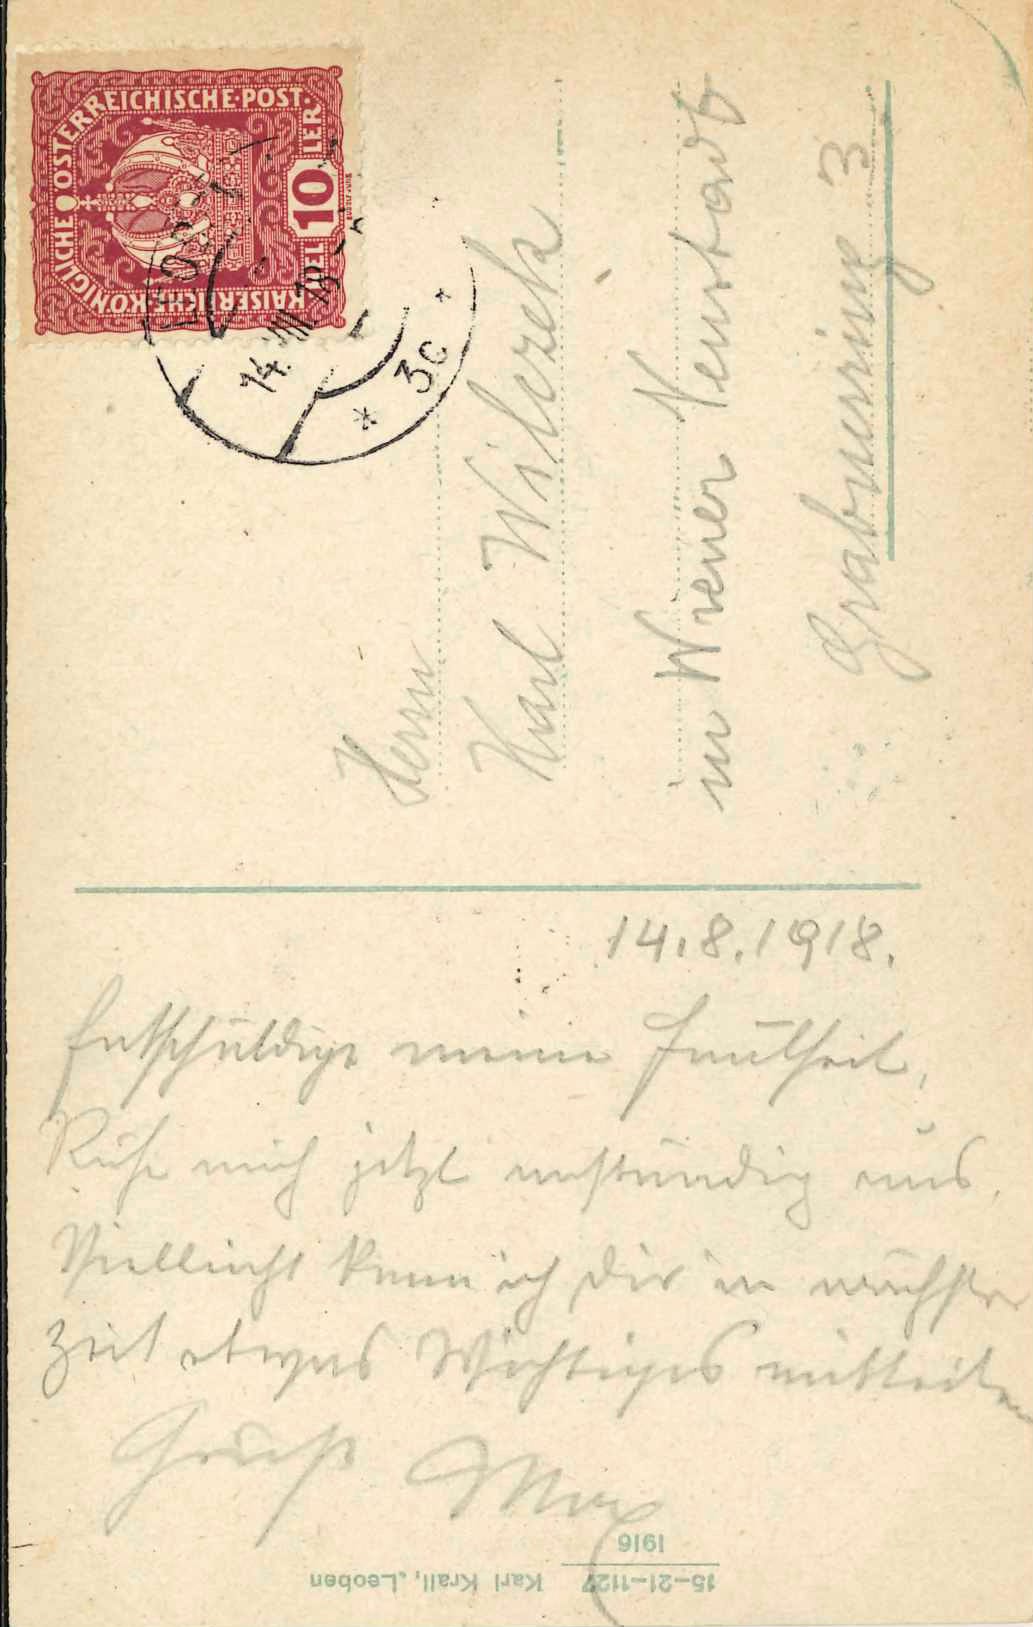 KAISERLICHE KÖNIGLICHE ÖSTERREICHISCHE POST
10
14.VIII.18
* 3c *
Herrn
Karl Wilczek
in Wiener Neustadt
Grabnerring 3
14.8.1918.
Entschuldige meine Faulheit,
Ruhe mich jetzt anständig aus.
Vielleicht kann ich Dir in nächster
Zeit etwas Wichtiges mitteilen
Gruß Max
15–21–1127 Karl Krall, Leoben
1916